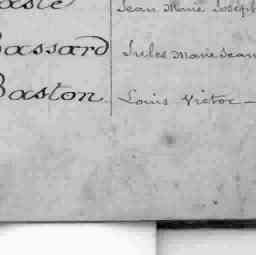 Jean Marie Joseph
Bassard Jules Marie Jean
Baston Louis Victor